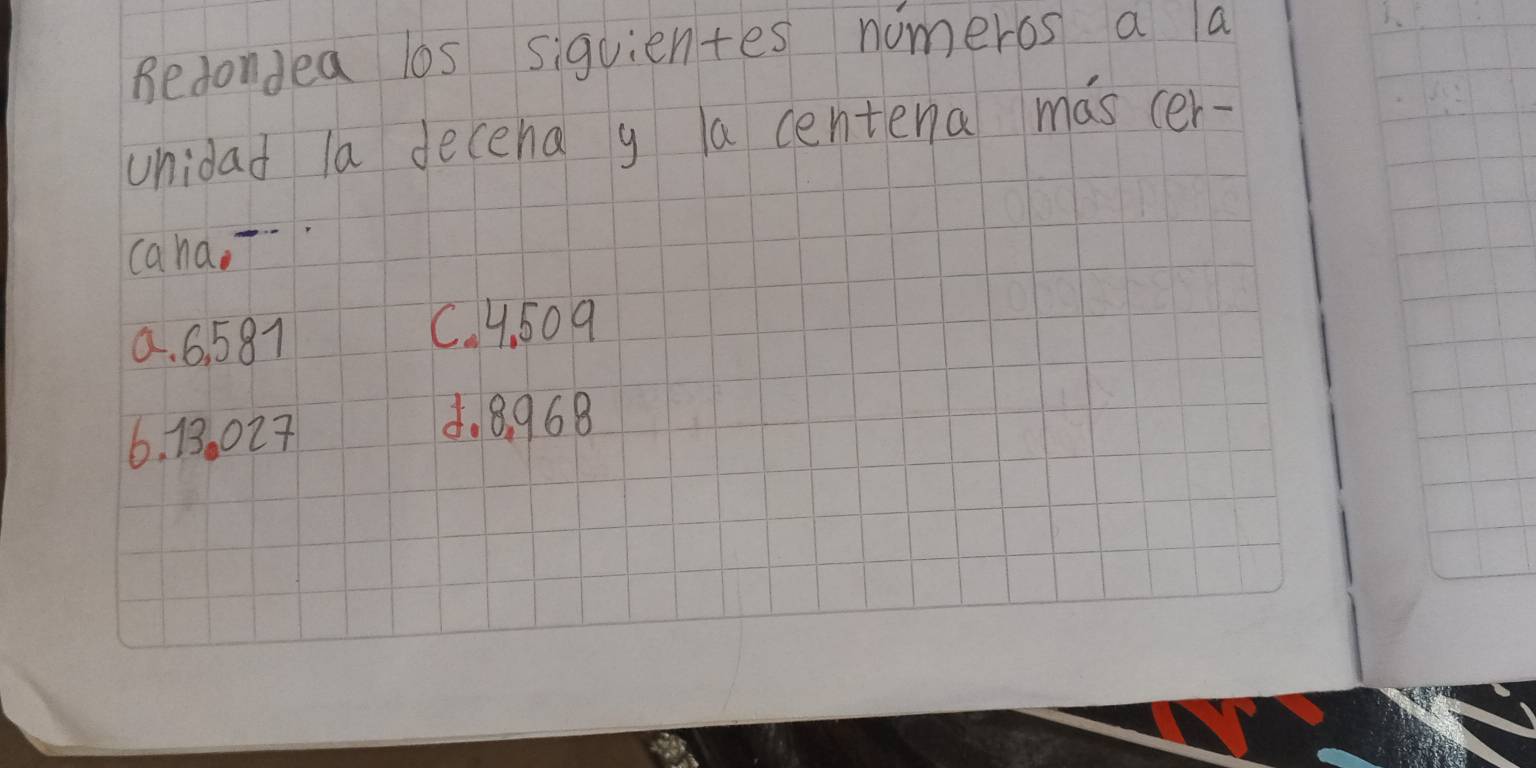 Redondea los siguientes números a la
unidad la decena y la centena más cer-
cana.
a. 6,581 c. 4.509
b. 13.027 d. 8,968